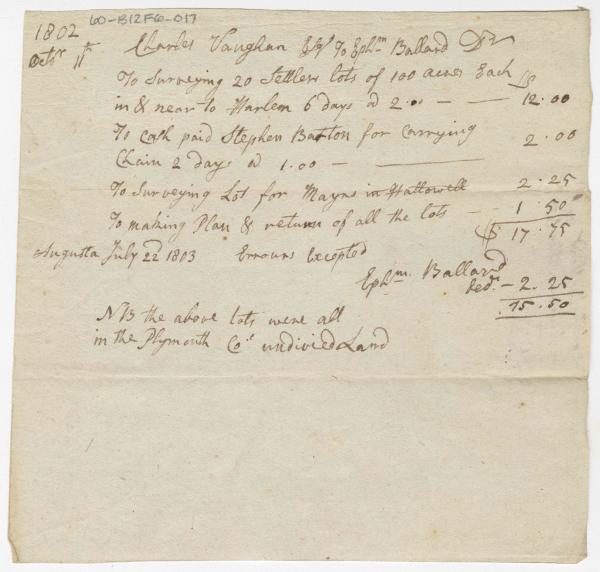 60-B12F6-017
1802
Octbr 11th Charles Vaughan Esqr To Ephm Ballard Dr
To Surveying 20 Settlers lots of 100 acres Each
in & near to Harlem 6 days @ 2.00 — — $ 12.00
To Cash paid Stephen Barton for Carrying
Chain 2 days @ 1.00 — — 2.00
To Surveying Lot for Mayns in Hallowell 2.25
To making Plan & return of all the lots — 1.50
$ 17.75
Augusta July 22d 1803 Errours Excepted
Ephm. Ballard
ded. — 2.25
15.50
NB the above lots were all
in the Plymouth Cos undivied Land